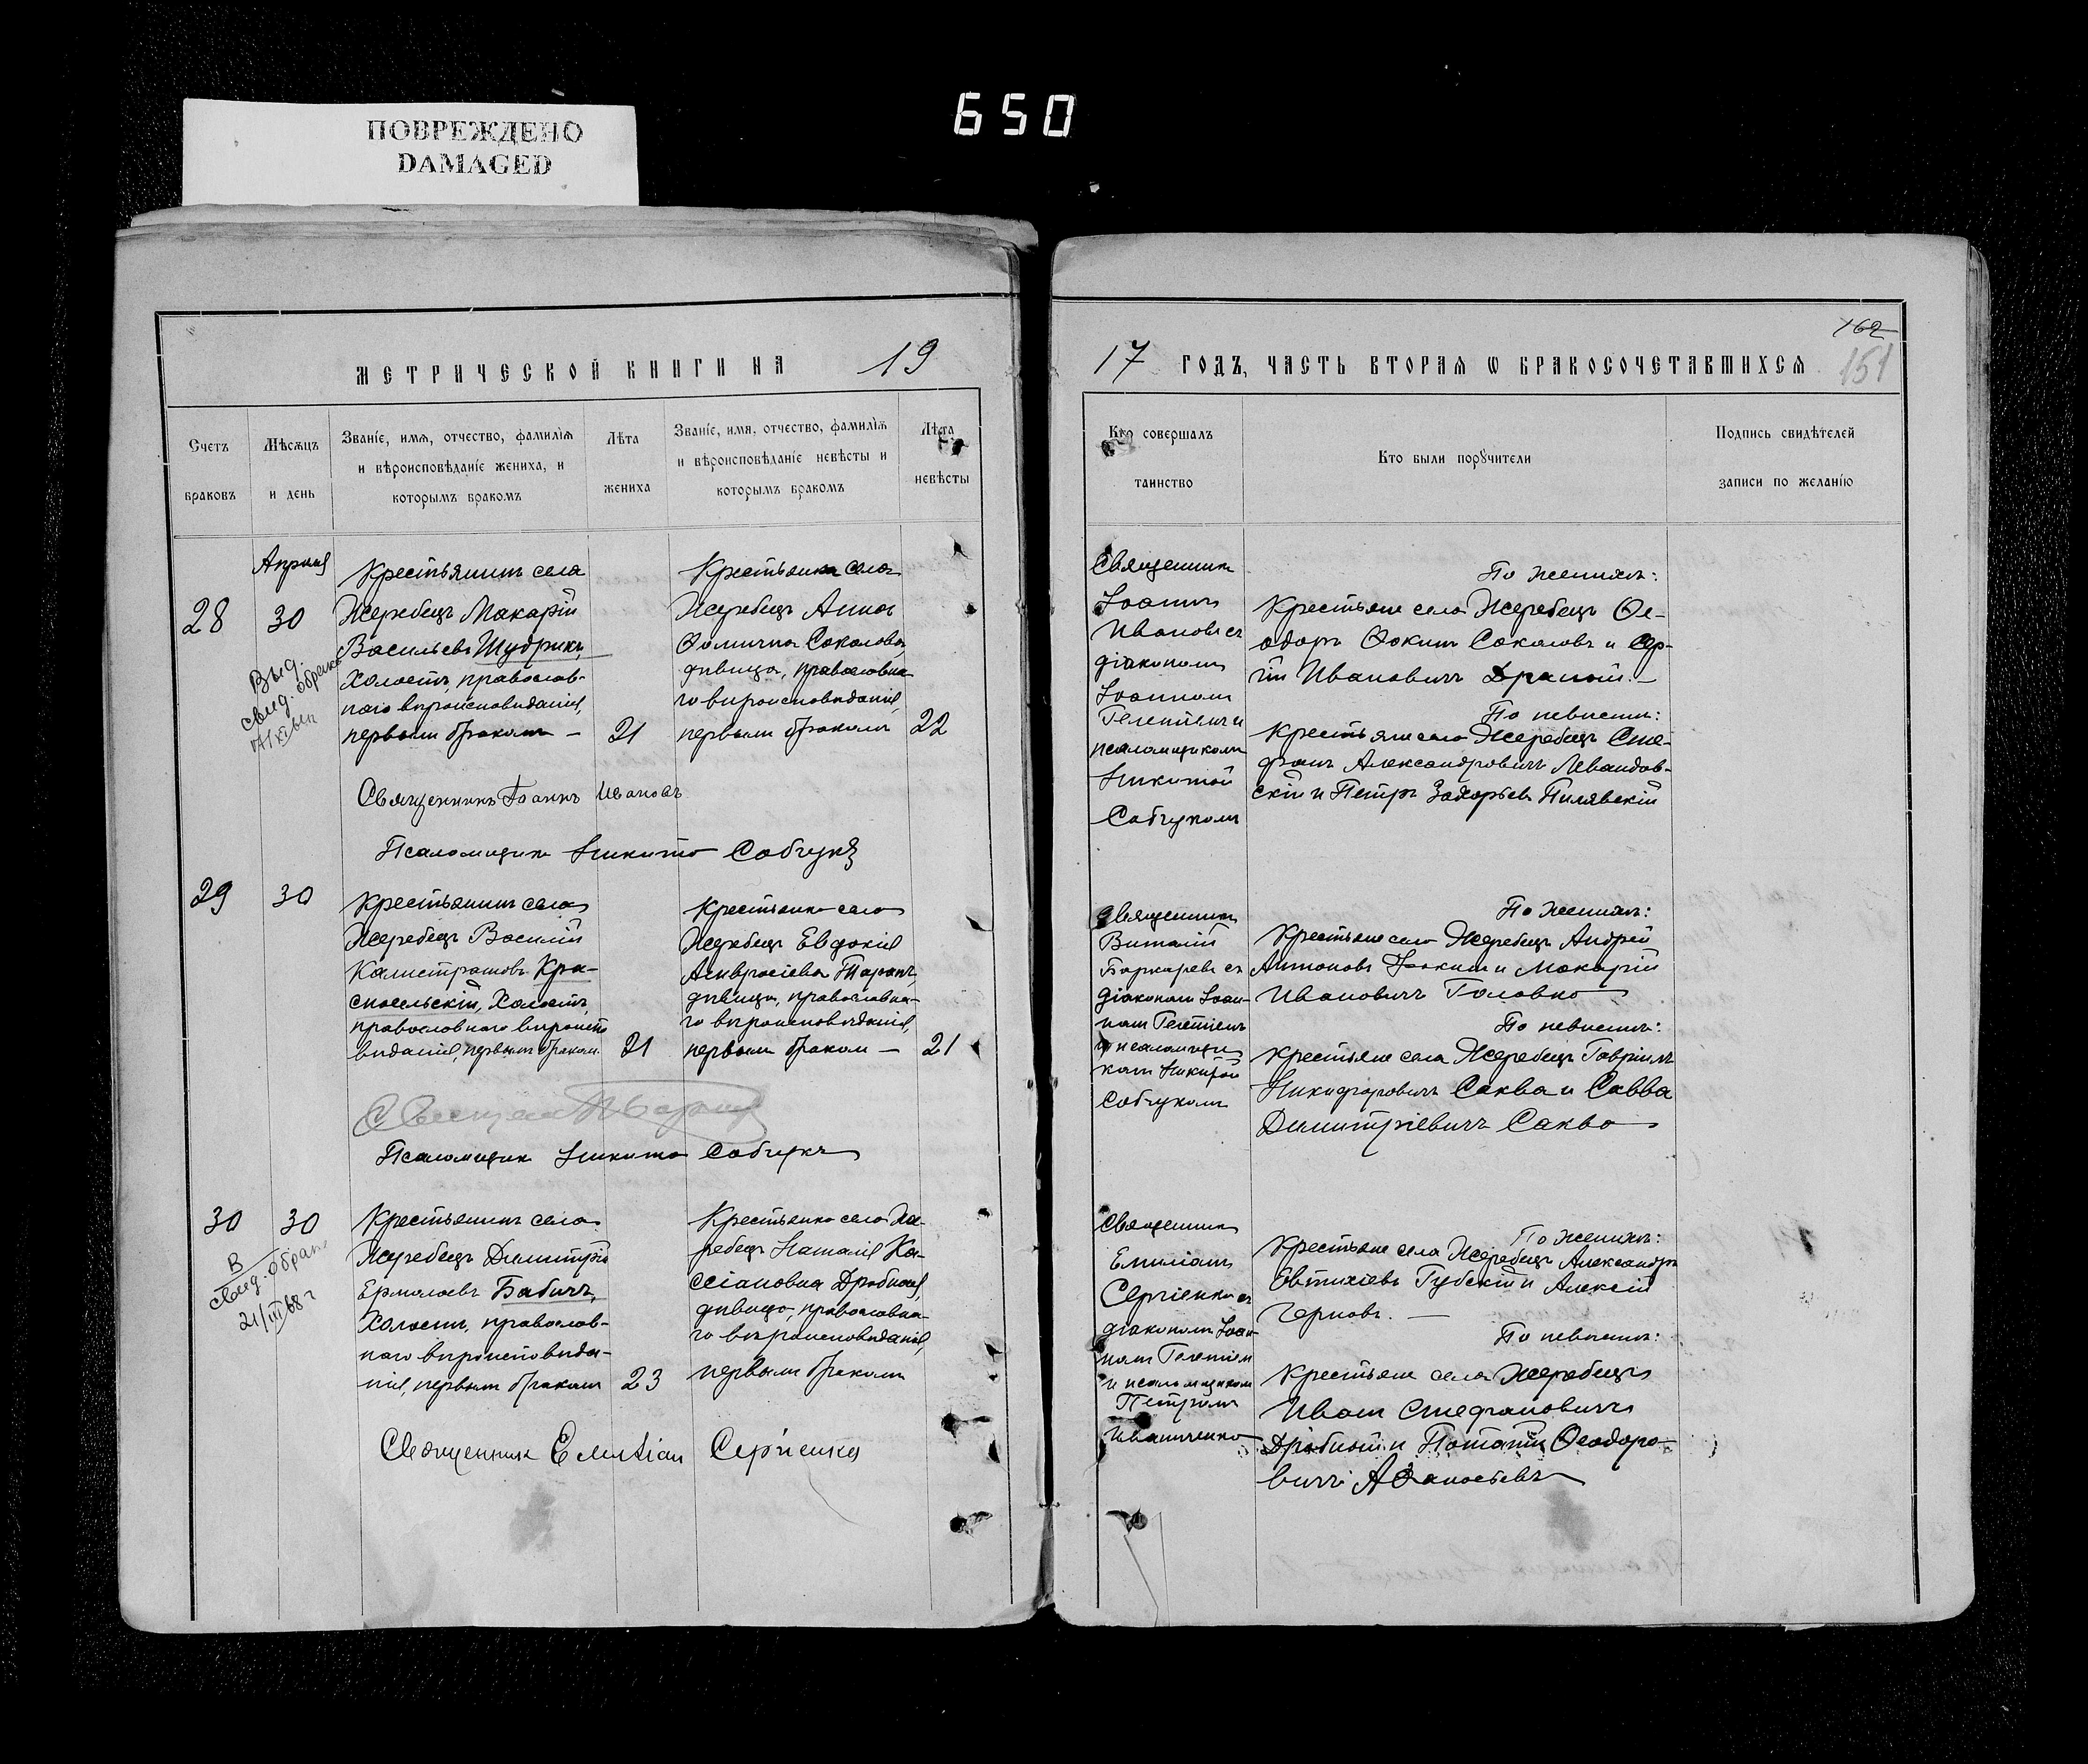 650
ПОВРЕЖДЕНО
DAMAGED
МЕТРИЧЕСКОЙ КНИГИ НА 19
Счетъ браковъ
Мѣсяцъ и день
Званіе, имя, отчество, фамилія и вѣроисповѣданіе жениха, и которымъ бракомъ
Лѣта жениха
Званіе, имя, отчество, фамилія и вѣроисповѣданіе невѣсты и которымъ бракомъ
Лѣта невѣсты
28
Апрѣля
30
Выд.
свид. о бракѣ
Крестьянинъ села
Жеребецъ Макарій
Васильевъ Шудрикъ,
холостъ, православ-
наго вѣроисповѣданія,
первымъ бракомъ —
21
Крестьянка села
Жеребецъ Анна
Ѳомична Соколова,
дѣвица, православна-
го вѣроисповѣданія,
первымъ бракомъ
22
Священникъ Іоаннъ Ивановъ
Псаломщикъ Никита Собчукъ
29
30
Крестьянинъ села
Жеребецъ Василій
Калистратовъ Кра-
сносельскій, холостъ,
православнаго вѣроиспо
вѣданія, первымъ бракомъ
21
Крестьянка села
Жеребецъ Евдокія
Амвросіева Таранъ,
дѣвица, православна-
го вѣроисповѣданія,
первымъ браком —
21
Псаломщикъ Никита Собчукъ
30
30
В
свид. о бракѣ
21/III 68 г
Крестьянинъ села
Жеребецъ Димитрій
Ермолаевъ Бабичъ,
холостъ, православ-
наго вѣроисповѣда-
нія, первымъ бракомъ
23
Крестьянка села Же-
ребецъ Наталія Ка-
ссіановна Дробная,
дѣвица, православна-
го вѣроисповѣданія,
первымъ бракомъ
Священник Емиліан Сергіенко
162
151
17 ГОДЪ, ЧАСТЬ ВТОРАЯ Ѡ БРАКОСОЧЕТАВШИХСЯ
Кто совершалъ таинство
Кто были порꙋчители
Подпись свидѣтелей записи по желанію
Священникъ
Іоаннъ
Ивановъ съ
діакономъ
Іоанномъ
псаломщикомъ
Никитой
Собчукомъ
По женихѣ:
Крестьяне села Жеребецъ Ѳе-
одоръ Ѳокинъ Соколовъ и Сер-
гій Ивановичъ Драный. —
По невѣстѣ:
Крестьяне села Жеребецъ Сте-
фанъ Александровичъ Левандов-
скій и Петръ Захарьевъ Пилявскій
Священникъ
Виталій
діакономъ Іоан-
номъ
и псаломщи-
комъ Никитой
Собчукомъ
По женихѣ:
Крестьяне села Жеребецъ Андрей
Антоновъ и Макарій
Ивановичъ Головко
По невѣстѣ:
Крестьяне села Жеребецъ Гавріилъ
Никифоровичъ Саква и Савва
Димитріевичъ Саква
Священникъ
Емиліанъ
Сергіенко съ
діакономъ Іоан-
номъ
и псаломщикомъ
Петромъ
Иванченко
По женихѣ:
Крестьяне села Жеребецъ Александръ
Евтихіевъ Губскій и Алексій
Черновъ. —
По невѣстѣ:
Крестьяне села Жеребецъ
Иванъ Стефановичъ
Дробный и Потапій Ѳеодоро-
вичъ Аѳанасьевъ